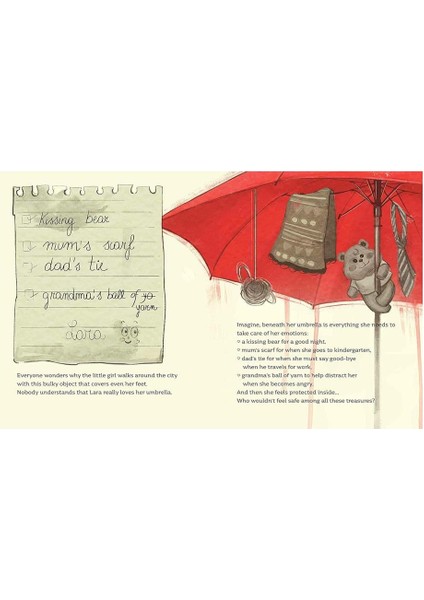 Kissing bear
mum's scarf
dad's tie
grandma's ball of yo
yarn
Lara
Everyone wonders why the little girl walks around the city
with this bulky object that covers even her feet.
Nobody understands that Lara really loves her umbrella.
Imagine, beneath her umbrella is everything she needs to
take care of her emotions:
a kissing bear for a good night,
mum's scarf for when she goes to kindergarten,
dad's tie for when she must say good-bye
when he travels for work,
grandma's ball of yarn to help distract her
when she becomes angry.
And then she feels protected inside...
Who wouldn't feel safe among all these treasures?